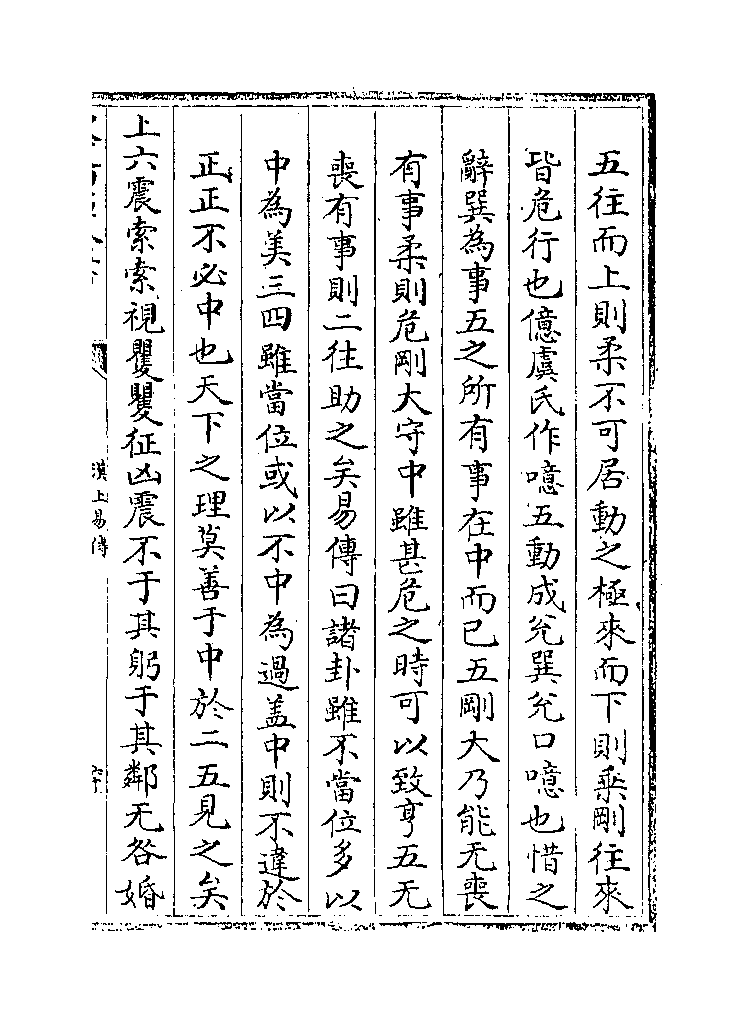 五往而上則柔不可居動之極來而下則乘剛往來
皆危行也億虞氏作噫五動成兊巽兊口噫也惜之
辭巽為事五之所有事在中而已五剛大乃能无喪
有事柔則危剛大守中雖甚危之時可以致亨五无
喪有事則二往助之矣易傳曰諸卦雖不當位多以
中為美三四雖當位或以不中為過盖中則不違於
正正不必中也天下之理莫善于中於二五見之矣
上六震索索視矍矍征凶震不于其躬于其鄰无咎婚
漢上易傳